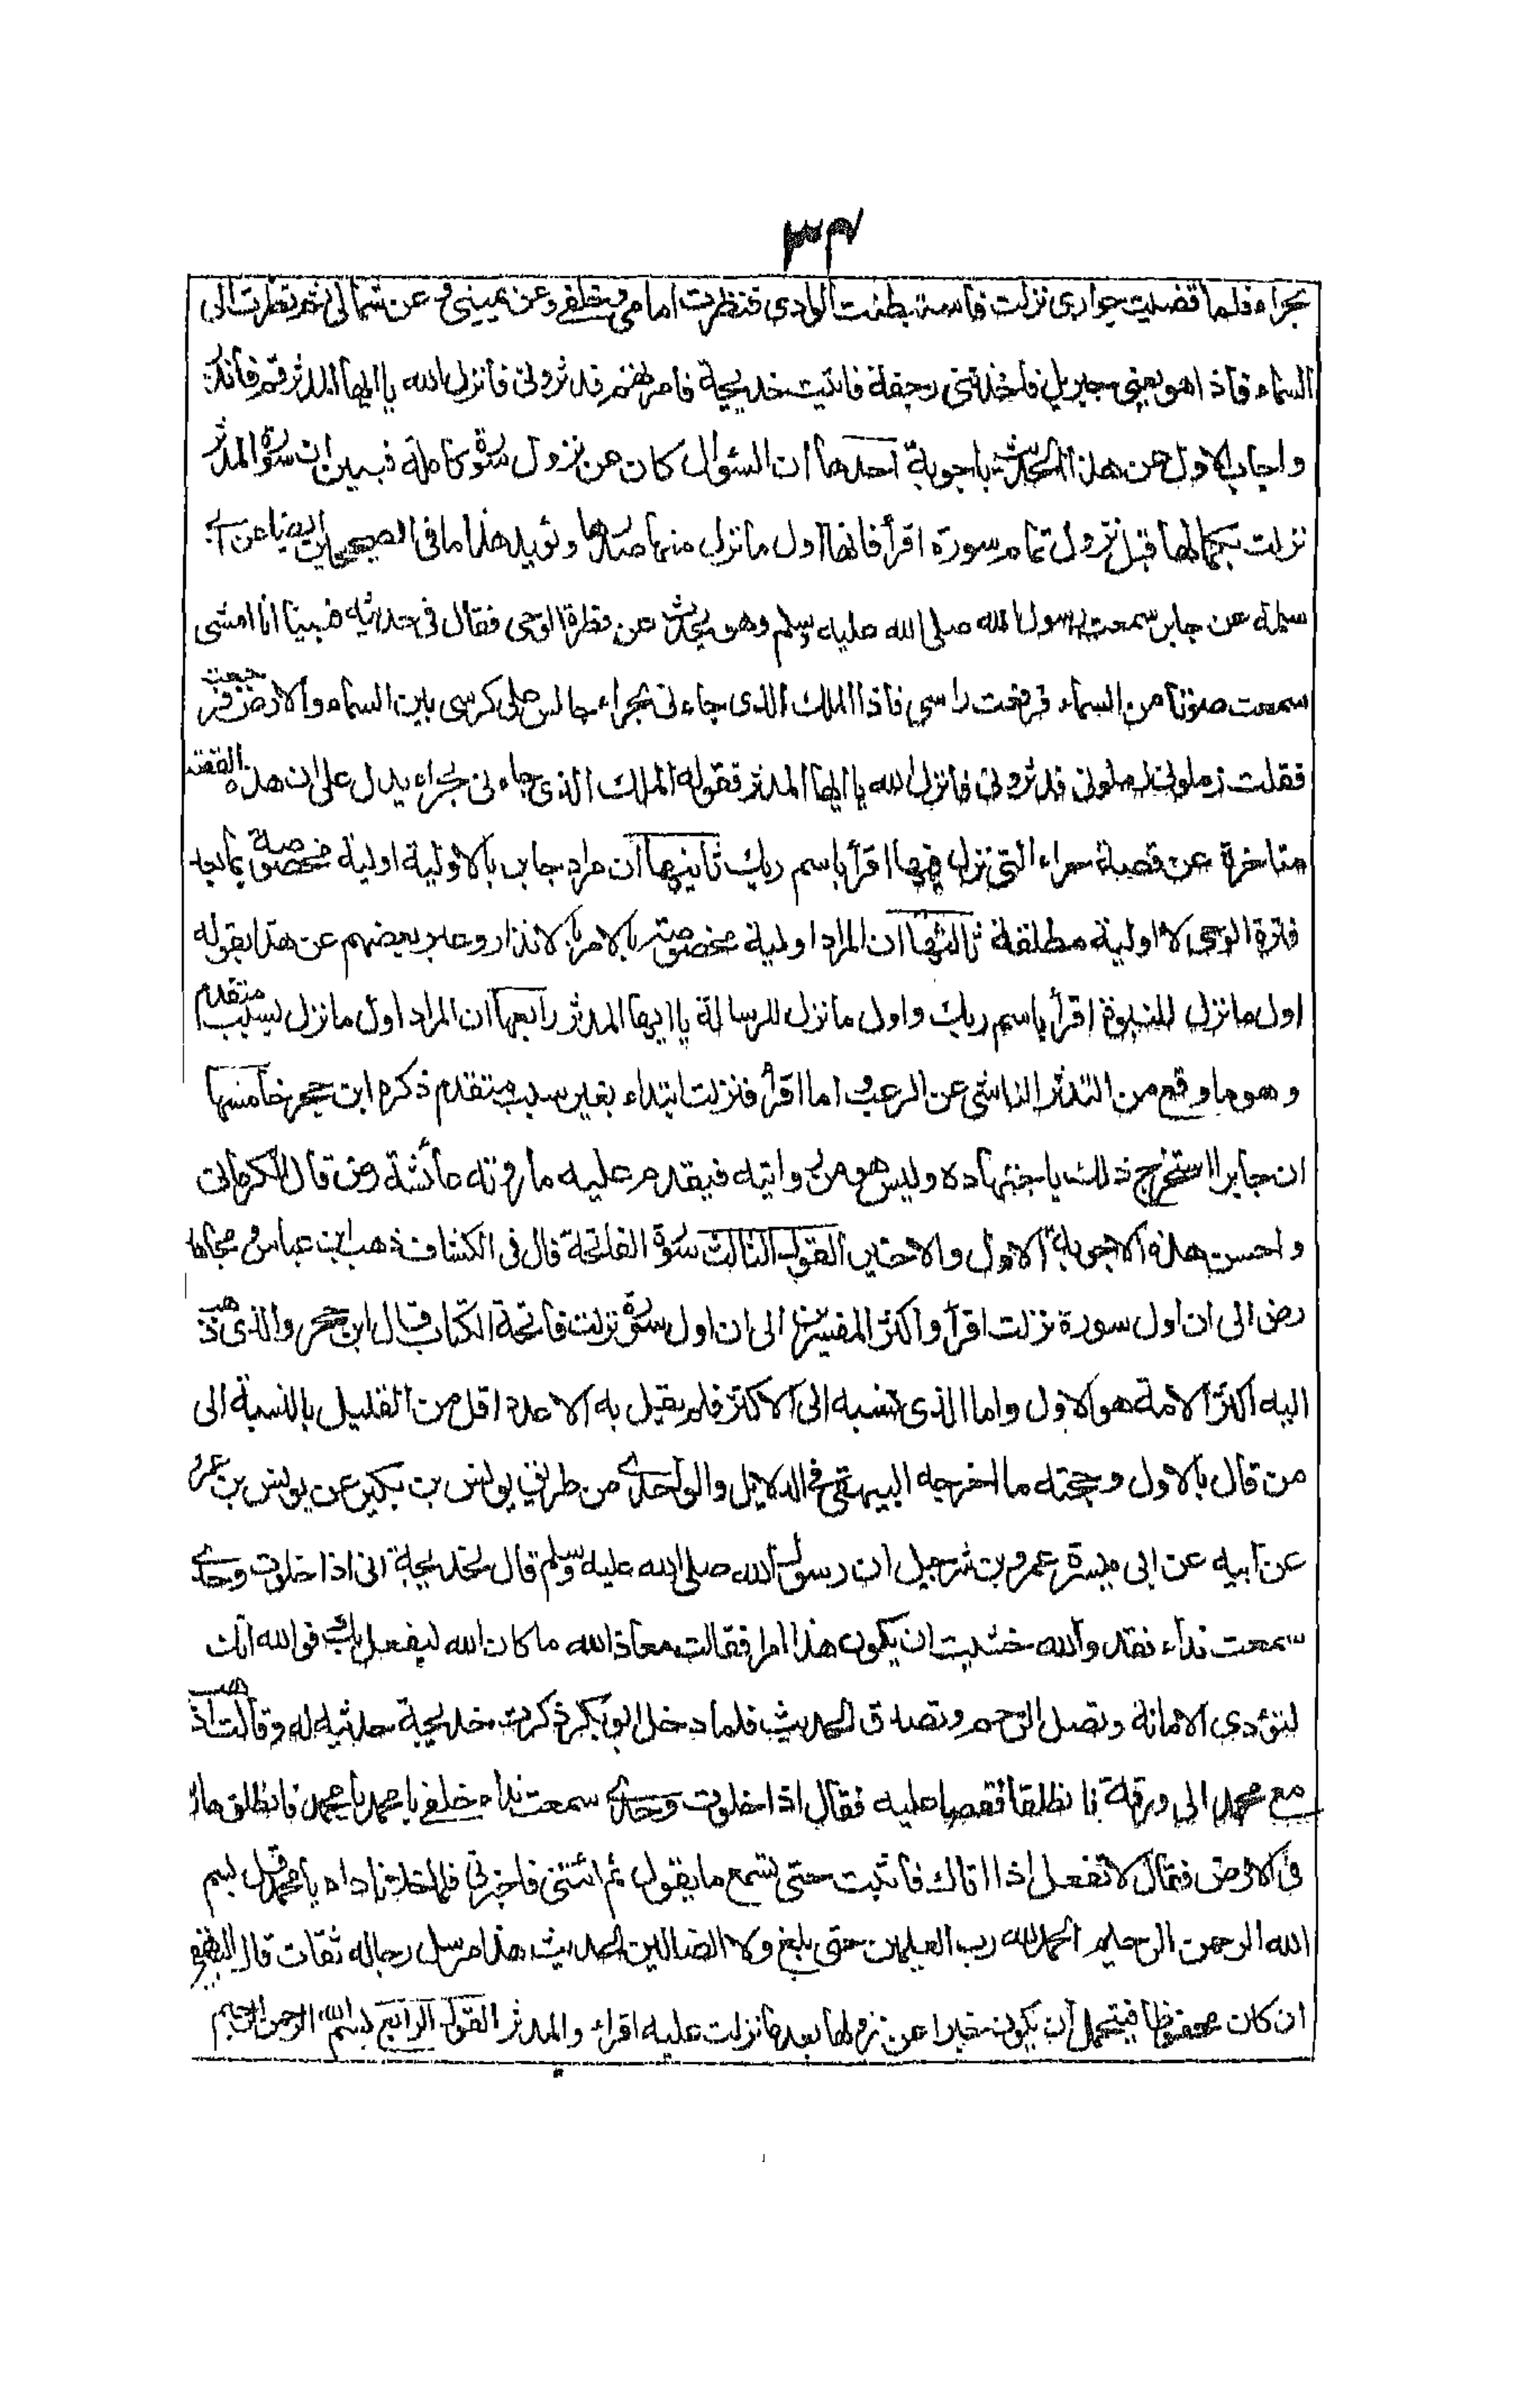 ٣٤
بحراء فلما قضيت جواري نزلت فاستبطنت الوادي فنظرت امامي وخلفي وعن يميني وعن شمالي ثم نظرت الى
السماء فاذا هو يعني جبريل فاخذتني رجفة فاتيت خديجة فامرتهم فدثروني فانزل الله يا ايها المدثر قم فانذر
واجاب الاول عن هذا الحديث باجوبة احدها ان السؤال كان عن نزول سورة كاملة فبين ان سورة المدثر
نزلت بكمالها قبل نزول تمام سورة اقرأ فانها اول ما نزل منها صدرها ويؤيد هذا ما في الصحيحين ايضا عن ابي
سلمة عن جابر سمعت رسول الله صلى الله عليه وسلم وهو يحدث عن فترة الوحى فقال فى حديثه فبينا انا امشى
سمعت صوتا من السماء فرفعت راسي فاذا الملك الذى جاءنى بحراء جالس على كرسى بين السماء والارض فرجعت
فقلت زملونى زملونى فدثرونى فانزل الله يا ايها المدثر فقوله الملك الذى جاءنى بحراء يدل على ان هذه القصة
متاخرة عن قصة حراء التى نزل فيها اقرأ باسم ربك ثانيها ان مراد جابر بالاولية اولية مخصوصة بما بعد
فترة الوحى لا اولية مطلقة ثالثها ان المراد اولية مخصوصة بالامر بالانذار وعبر بعضهم عن هذا بقوله
اول ما نزل للنبوة اقرأ باسم ربك واول ما نزل للرسالة يا ايها المدثر رابعها ان المراد اول ما نزل بسبب متقدم
وهو ما وقع من التدثر الناشى عن الرعب واما اقرأ فنزلت ابتداء بغير سبب متقدم ذكره ابن حجر خامسها
ان جابرا استخرج ذلك باجتهاده وليس هو من روايته فيقدم عليه ما روته عائشة رض قال الكرمانى
واحسن هذه الاجوبة الاول والاخير القول الثالث سورة الفاتحة قال فى الكشاف ذهب ابن عباس ومجاهد
رض الى ان اول سورة نزلت اقرأ واكثر المفسرين الى ان اول سورة نزلت فاتحة الكتاب قال ابن حجر والذى ذهب
اليه اكثر الائمة هو الاول واما الذى نسبه الى الاكثر فلم يقل به الا عدد اقل من القليل بالنسبة الى
من قال بالاول وحجته ما اخرجه البيهقى فى الدلايل والواحدى من طريق يونس بن بكير عن يونس بن عمرو
عن ابيه عن ابى ميسرة عمرو بن شرحبيل ان رسول الله صلى الله عليه وسلم قال لخديجة انى اذا خلوت وحدى
سمعت نداء فقد والله خشيت ان يكون هذا امرا فقالت معاذ الله ما كان الله ليفعل بك فوالله انك
لتؤدى الامانة وتصل الرحم وتصدق الحديث فلما دخل ابو بكر ذكرت خديجة حديثه له وقالت اذهب
مع محمد الى ورقة فانطلقا فقصا عليه فقال اذا خلوت وحدى سمعت نداء خلفى يا محمد يا محمد فانطلق هاربا
فى الارض فقال لا تفعل اذا اتاك فاثبت حتى تسمع ما يقول ثم ائتنى فاخبرنى فلما خلا ناداه يا محمد قل بسم
الله الرحمن الرحيم الحمد لله رب العلمين حتى بلغ ولا الضالين الحديث هذا مرسل رجاله ثقات قال البيهقى
ان كان محفوظا فيحتمل ان يكون خبرا عن نزولها بعد ما نزلت عليه اقراء والمدثر القول الرابع بسم الله الرحمن الرحيم